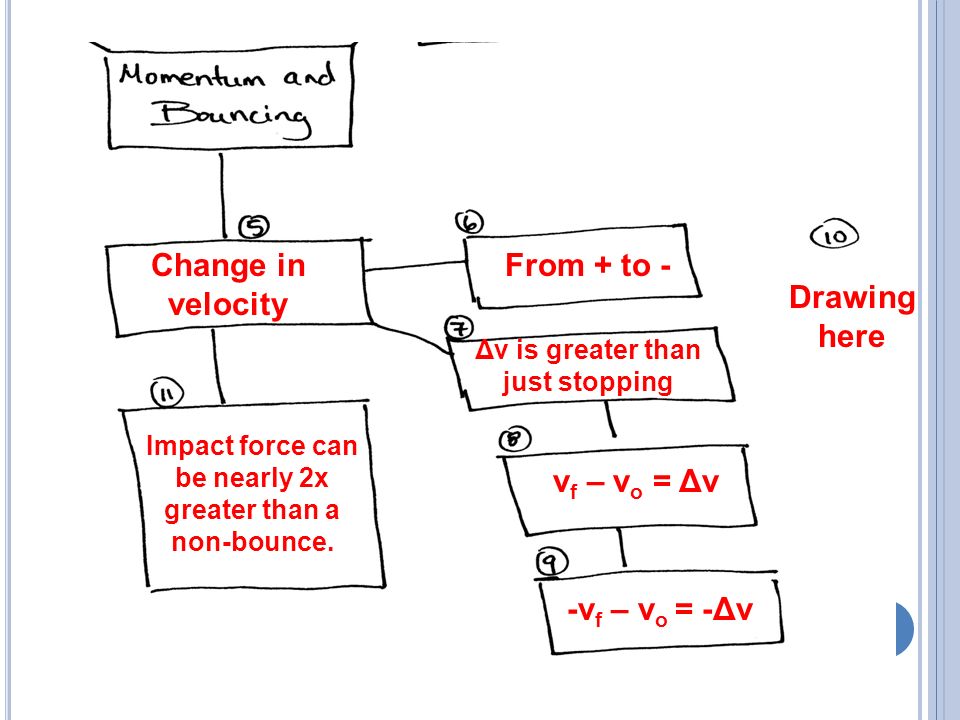 Momentum and
Bouncing
5
Change in
velocity
6
From + to -
10
Drawing
here
7
Δv is greater than
just stopping
11
Impact force can
be nearly 2x
greater than a
non-bounce.
8
vf – vo = Δv
9
-vf – vo = -Δv